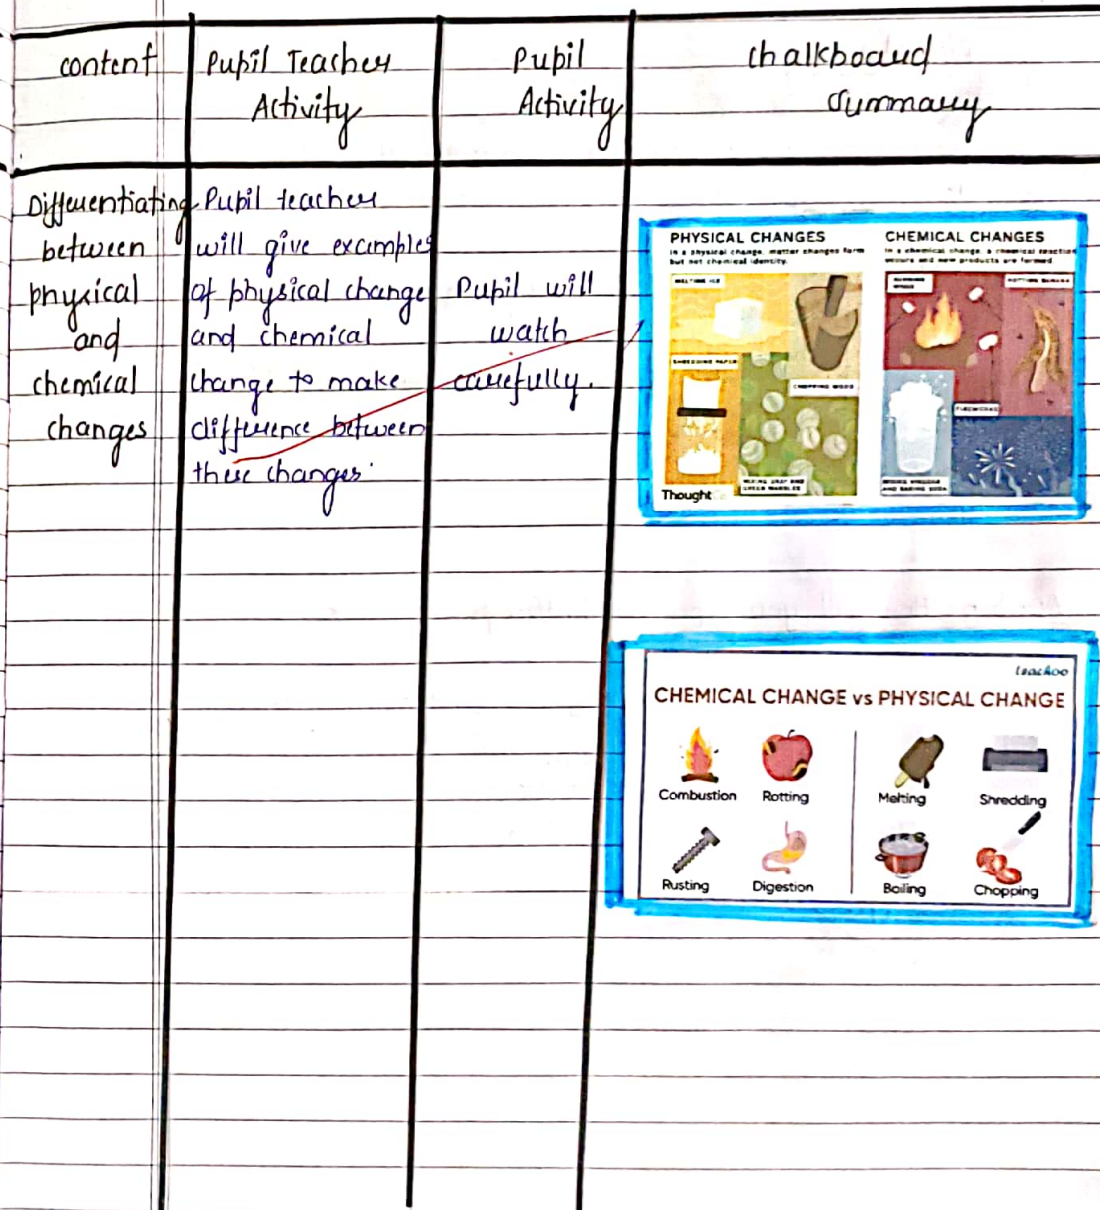 content
Pupil Teacher
Activity
Pupil
Activity
Chalkboard
Summary
Differentiating
between
physical
and
chemical
changes
Pupil teacher
will give examples
of physical change
and chemical
change to make
difference between
these changes.
Pupil will
watch
carefully.
PHYSICAL CHANGES
In a physical change, matter changes form
but not chemical identity.
MELTING ICE
SHREDDING PAPER
CHOPPING WOOD
MIXING GRAY AND
GREEN MARBLES
CHEMICAL CHANGES
In a chemical change, a chemical reaction
occurs and new products are formed.
BURNING
WOOD
ROTTING BANANA
FIREWORKS
MIXING VINEGAR
AND BAKING SODA
Thought
teachoo
CHEMICAL CHANGE vs PHYSICAL CHANGE
Combustion Rotting Melting Shredding
Rusting Digestion Boiling Chopping